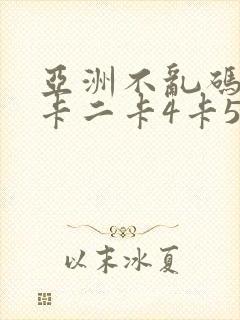 亞洲不亂碼
卡二卡4卡5
以末冰夏